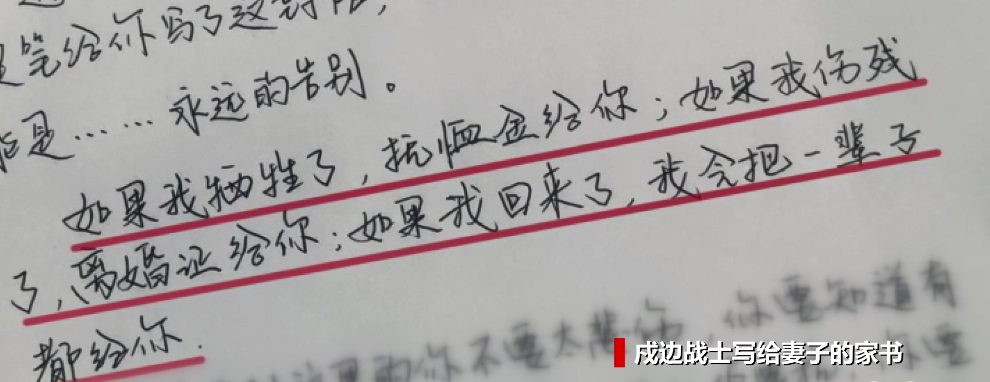 笔给你写了这封信，
是……永远的告别。
如果我牺牲了，抚恤金给你；如果我伤残
了，离婚证给你；如果我回来了，我会把一辈子
都给你.
的你不要太悲伤，你要知道有
戍边战士写给妻子的家书